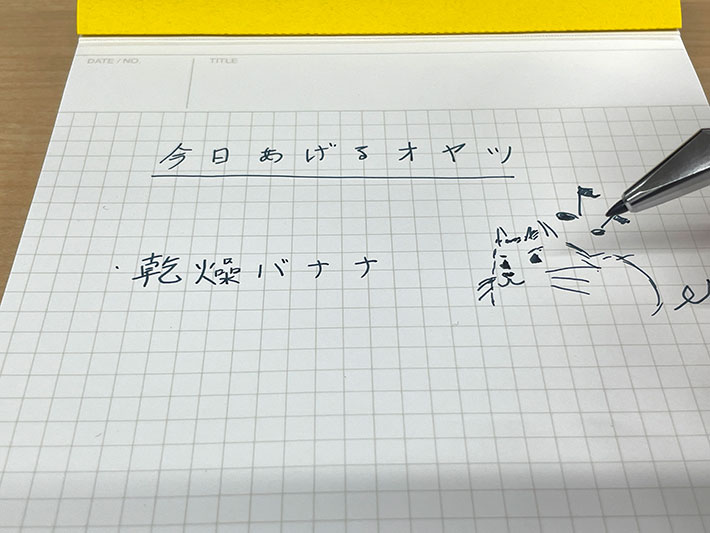 DATE / NO.
TITLE
今日あげるオヤツ
・乾燥バナナ